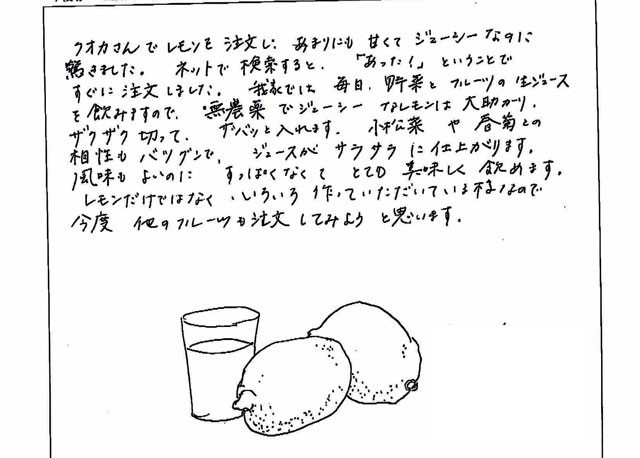 クオカさんでレモンを注文し、あまりにも甘くてジューシーなのに
驚きました。ネットで検索すると、「あった!」ということで
すぐに注文しました。我家では毎日、野菜とフルーツの生ジュース
を飲みますので、無農薬でジューシーなレモンは大助かり。
ザクザク切って、ザバッと入れます。小松菜や春菊との
相性もバツグンで、ジュースがサラサラに仕上がります。
風味もよいのにすっぱくなくてとても美味しく飲めます。
レモンだけではなく、いろいろ作っていただいている様なので
今度他のフルーツも注文してみようと思います。